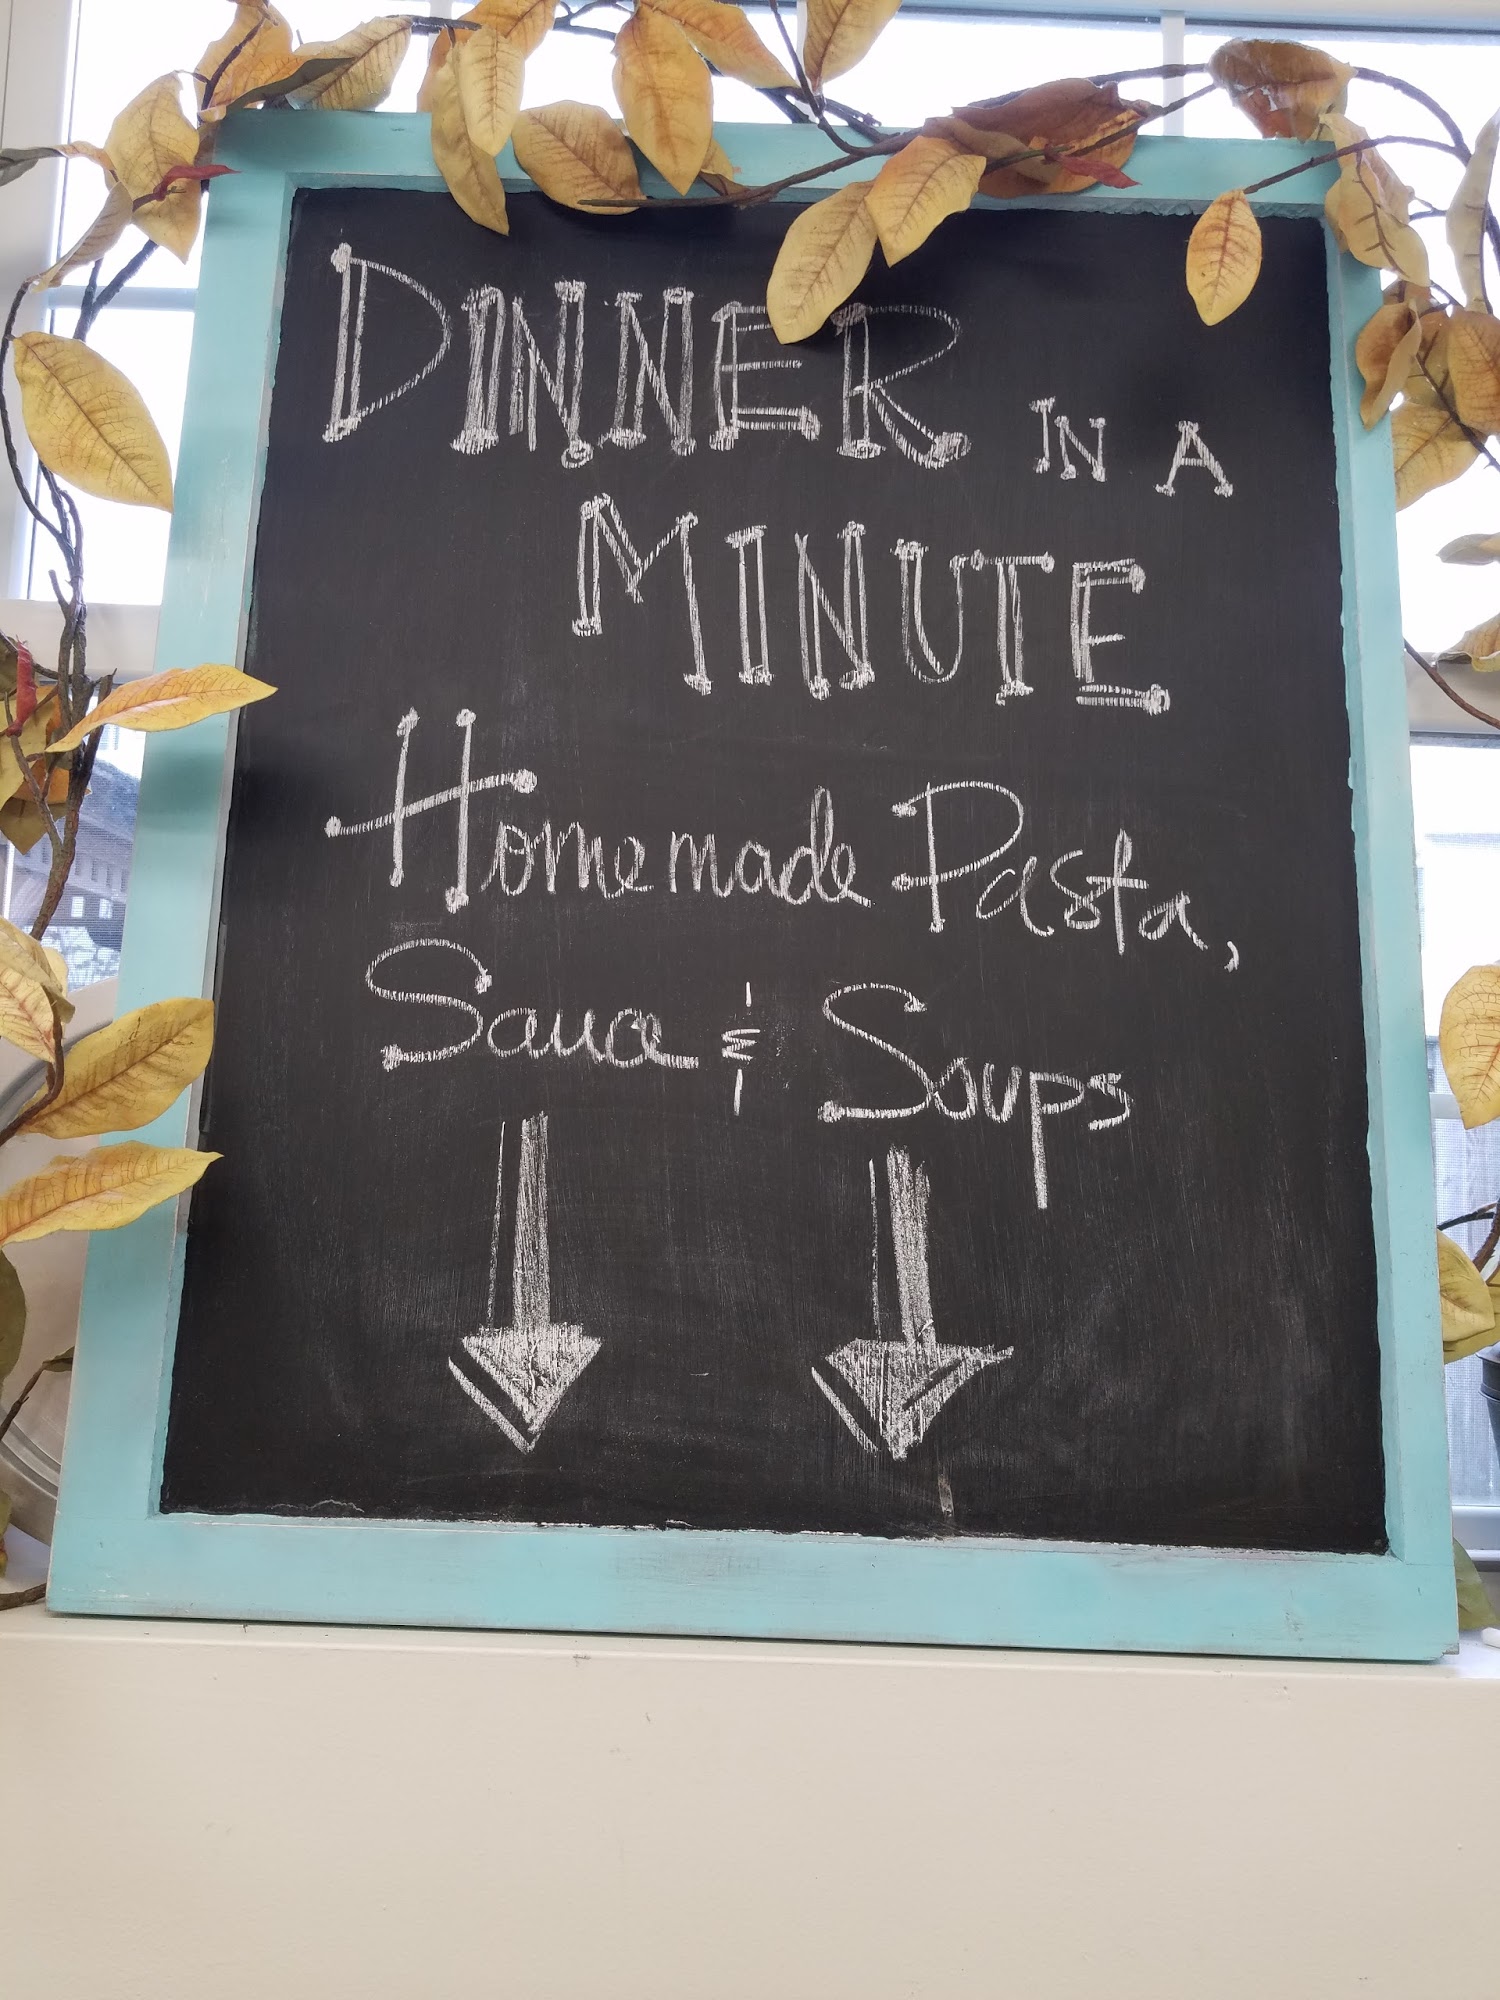 DINNER IN A
MINUTE
Homemade Pasta,
Sauce & Soups